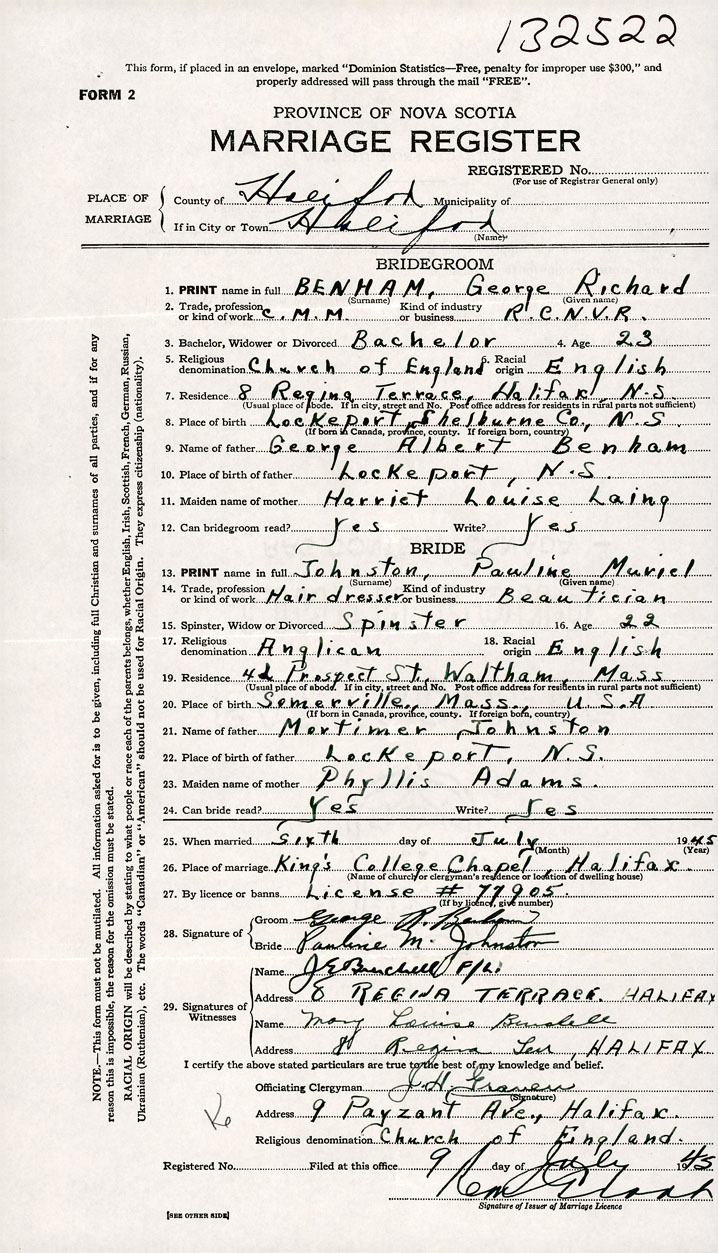 132522
This form, if placed in an envelope, marked "Dominion Statistics—Free, penalty for improper use $300," and
properly addressed will pass through the mail "FREE".
FORM 2
PROVINCE OF NOVA SCOTIA
MARRIAGE REGISTER
REGISTERED No.
(For use of Registrar General only)
PLACE OF MARRIAGE
County of Halifax Municipality of
If in City or Town Halifax
(Name)
BRIDEGROOM
1. PRINT name in full BENHAM, George Richard
(Surname) (Given name)
2. Trade, profession or kind of work C.M.M. Kind of industry or business R.C.N.V.R.
3. Bachelor, Widower or Divorced Bachelor 4. Age 23
5. Religious denomination Church of England 6. Racial origin English
7. Residence 8 Regina Terrace, Halifax, N.S.
(Usual place of abode. If in city, street and No. Post office address for residents in rural parts not sufficient)
8. Place of birth Lockeport, Shelburne Co., N.S.
(If born in Canada, province, county. If foreign born, country)
9. Name of father George Albert Benham
10. Place of birth of father Lockeport, N.S.
11. Maiden name of mother Harriet Louise Laing
12. Can bridegroom read? Yes Write? Yes
BRIDE
13. PRINT name in full Johnston, Pauline Muriel
(Surname) (Given name)
14. Trade, profession or kind of work Hairdresser Kind of industry or business Beautician
15. Spinster, Widow or Divorced Spinster 16. Age 22
17. Religious denomination Anglican 18. Racial origin English
19. Residence Prospect St., Waltham, Mass.
(Usual place of abode. If in city, street and No. Post office address for residents in rural parts not sufficient)
20. Place of birth Somerville, Mass., U.S.A
(If born in Canada, province, county. If foreign born, country)
21. Name of father Mortimer Johnston
22. Place of birth of father Lockeport, N.S.
23. Maiden name of mother Phyllis Adams.
24. Can bride read? Yes Write? Yes
25. When married sixth day of July 1945
(Month) (Year)
26. Place of marriage King's College Chapel, Halifax.
(Name of church or clergyman's residence or location of dwelling house)
27. By licence or banns License # 77905.
(If by licence, give number)
28. Signature of
Groom George R. Benham
Bride Pauline M. Johnston
29. Signatures of Witnesses
Name J E Burchell F/L.
Address 8 REGINA TERRACE. HALIFAX
Name Mary Louise Burchell
Address 8 Regina Terr, HALIFAX
I certify the above stated particulars are true to the best of my knowledge and belief.
Officiating Clergyman J.H.
(Signature)
Address 9 Payzant Ave., Halifax.
Religious denomination Church of England.
Registered No. Filed at this office 9 day of July 1945
Signature of Issuer of Marriage Licence
[SEE OTHER SIDE]
NOTE.—This form must not be mutilated. All information asked for is to be given, including full Christian and surnames of all parties, and if for any
reason this is impossible, the reason for the omission must be stated.
RACIAL ORIGIN will be described by stating to what people or race each of the parents belongs, whether English, Irish, Scottish, French, German, Russian,
Ukrainian (Ruthenian), etc. The words "Canadian" or "American" should not be used for Racial Origin. They express citizenship (nationality).